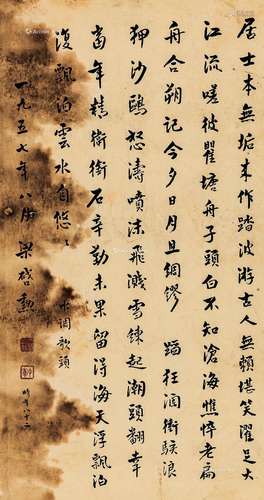 居士本無垢來作踏波游古人無賴堪笑濯足大
江流嗟彼瞿塘舟子頭白不知滄海憔悴老扁
舟合朔記今夕日月且綢繆 蹈狂瀾衝駭浪
狎沙鷗怒濤噴沫飛濺雪練起潮頭翻幸
當年精衛銜石辛勤未果留得海天浮飄泊
復飄泊雲水自悠々
水調歌頭
一九五七年八月 梁啓勳
時年八十二